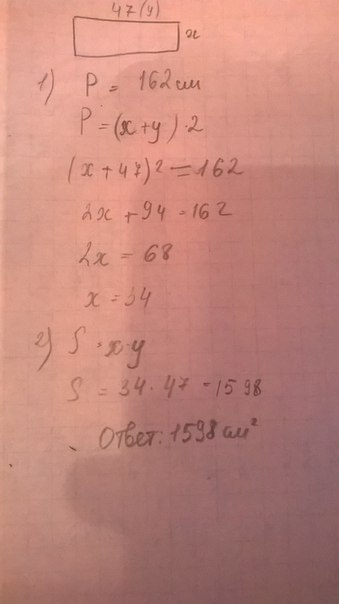 47(y)
x
1) P = 162 см
P = (x+y)·2
(x+47)2 = 162
2x + 94 = 162
2x = 68
x = 34
2) S = x·y
S = 34·47 = 1598
Ответ: 1598 см²